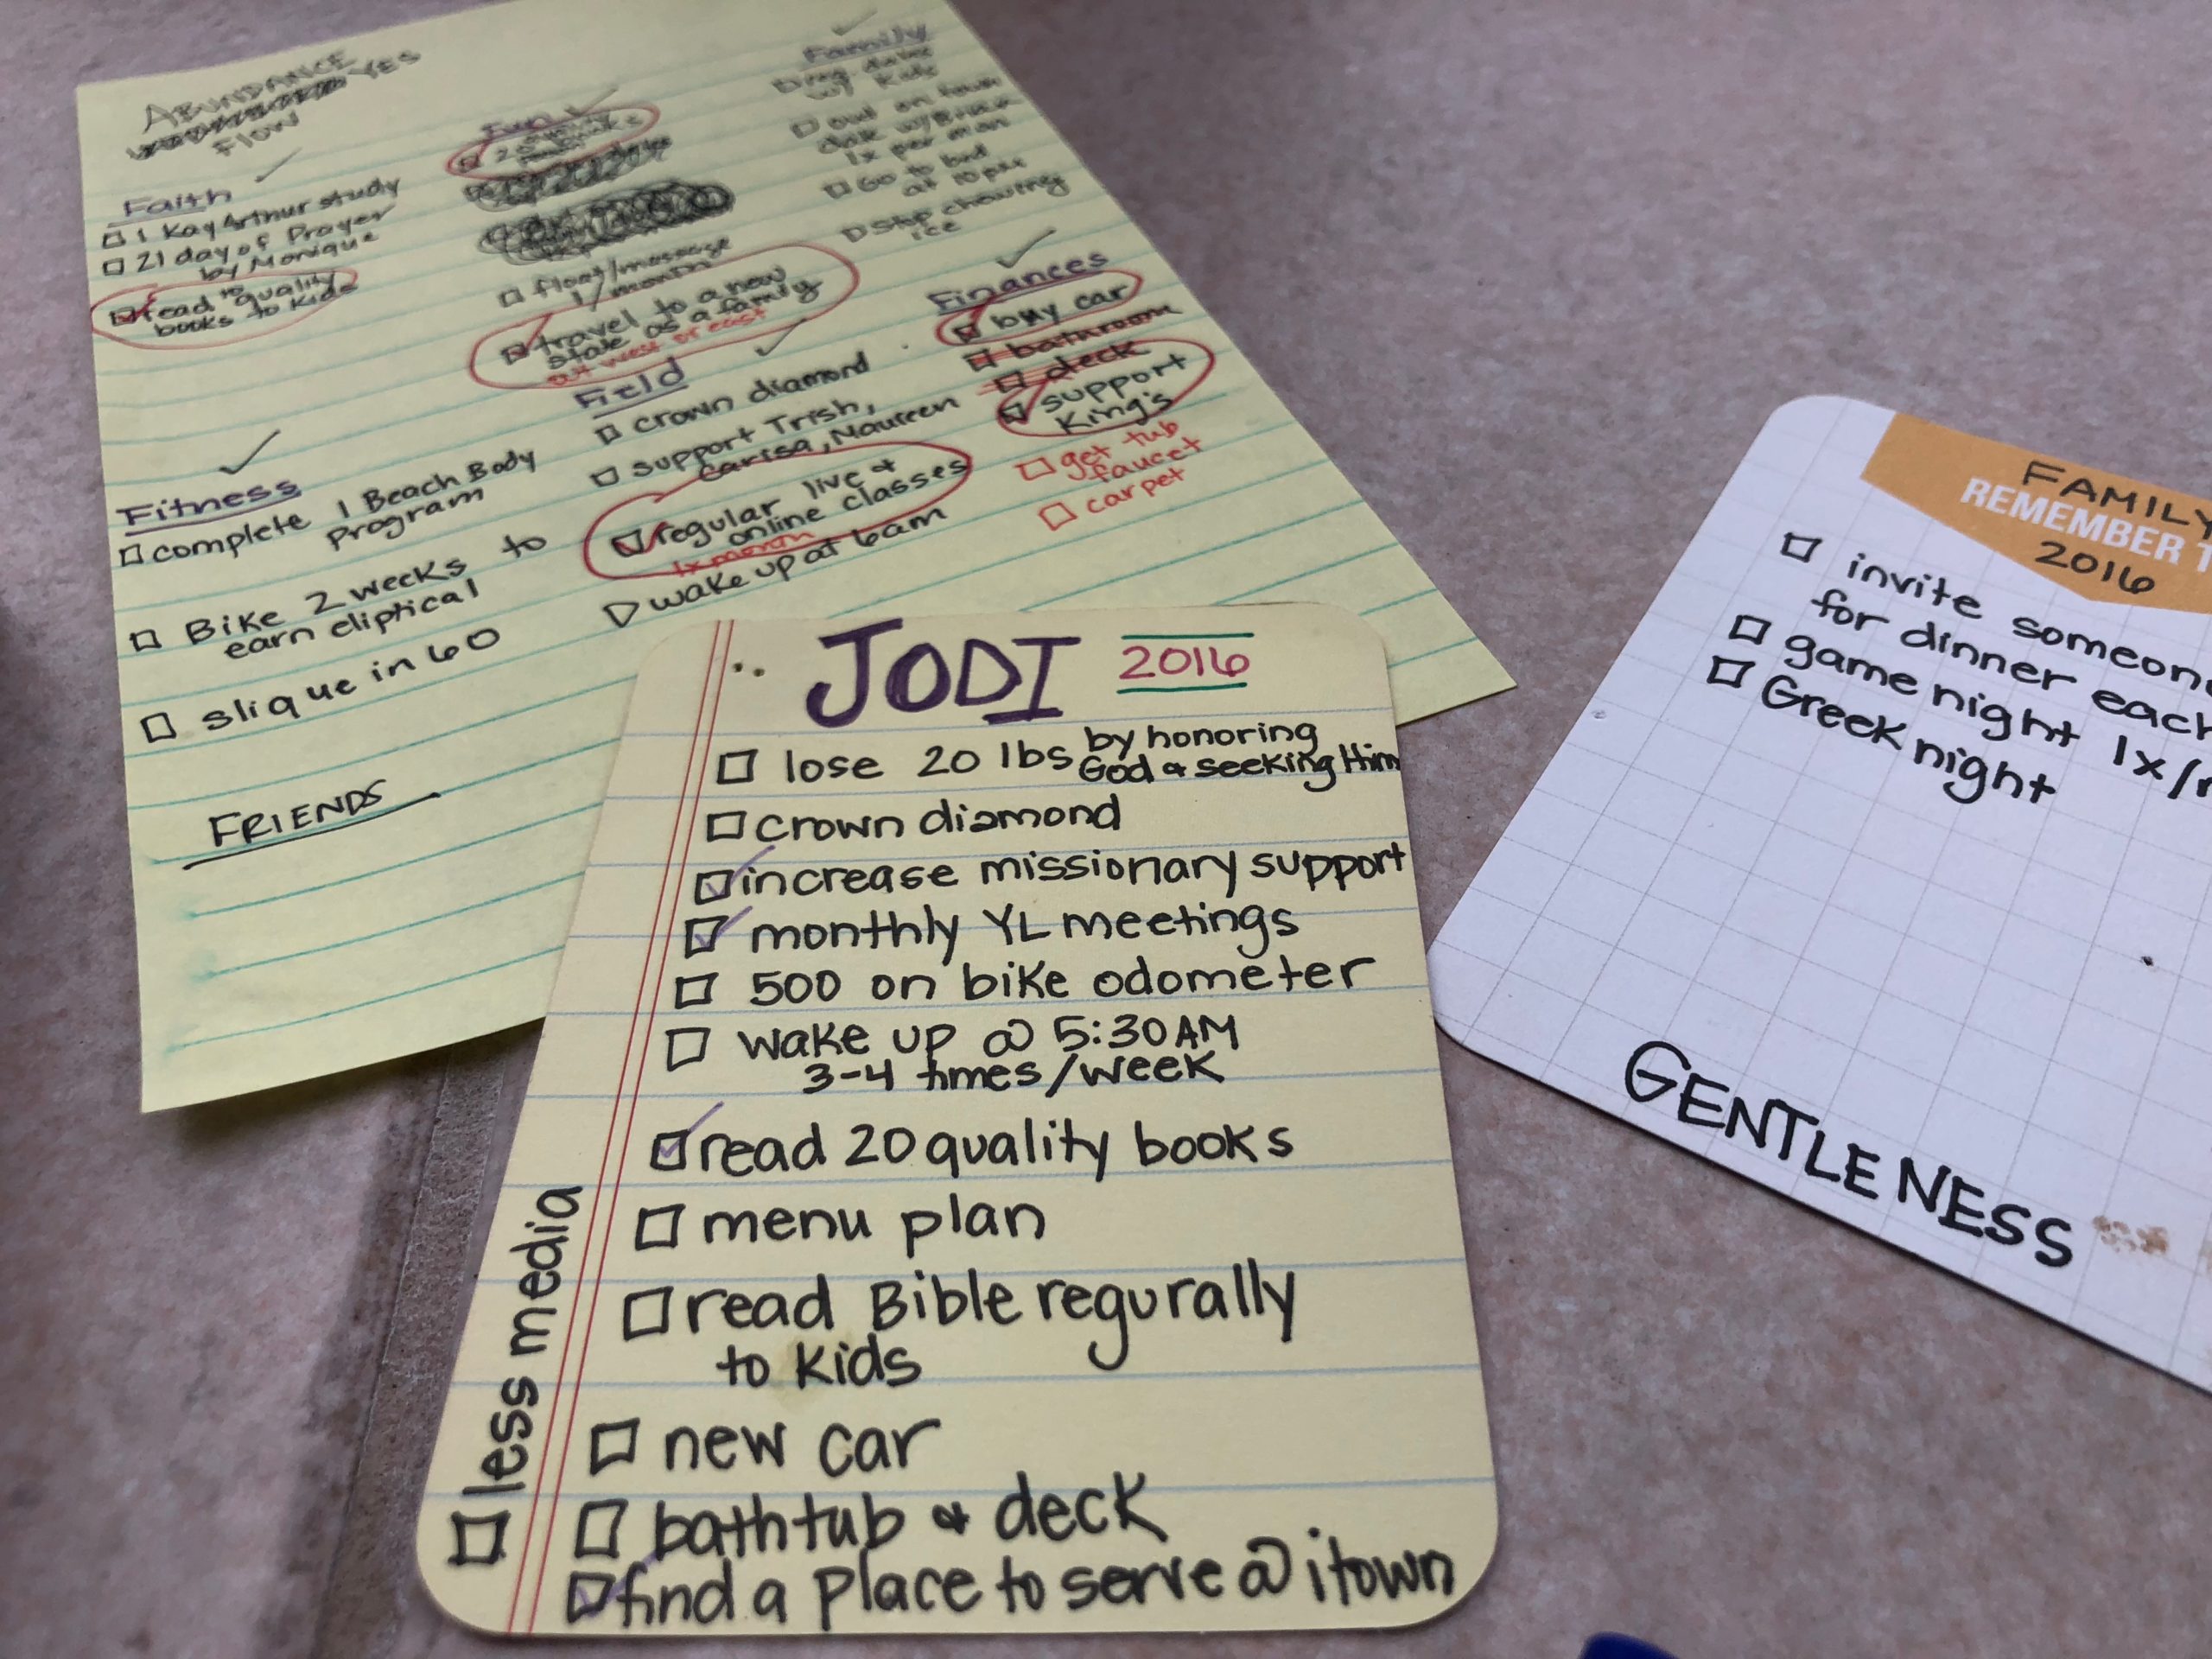 ABUNDANCE
YES
FLOW
Faith
1 Kay Arthur study
21 day of Prayer
by Monique
read 10 quality
books to kids
Fitness
complete 1 Beach Body
program
Bike 2 weeks to
earn eliptical
slique in 60
FRIENDS
Fun
20
float/massage
1/month
travel to a new
state as a family
out west or east
Field
crown diamond
support Trish,
Carisa, Maureen
regular live &
online classes
1x month
wake up at 6am
Family
reg. date
w/ kids
out on town
date w/
1x per mon
Go to bed
at 10pm
Stop chewing
ice
Finances
buy car
bathroom
deck
support
King's
get tub
faucet
carpet
JODI 2016
lose 20 lbs by honoring
God & seeking Him
crown diamond
increase missionary support
monthly YL meetings
500 on bike odometer
wake up @ 5:30 AM
3-4 times/week
read 20 quality books
menu plan
read Bible regurally
to kids
new car
bathtub & deck
find a place to serve @ itown
less media
FAMILY
REMEMBER
2016
invite someone
for dinner each
game night 1x/
Greek night
GENTLENESS